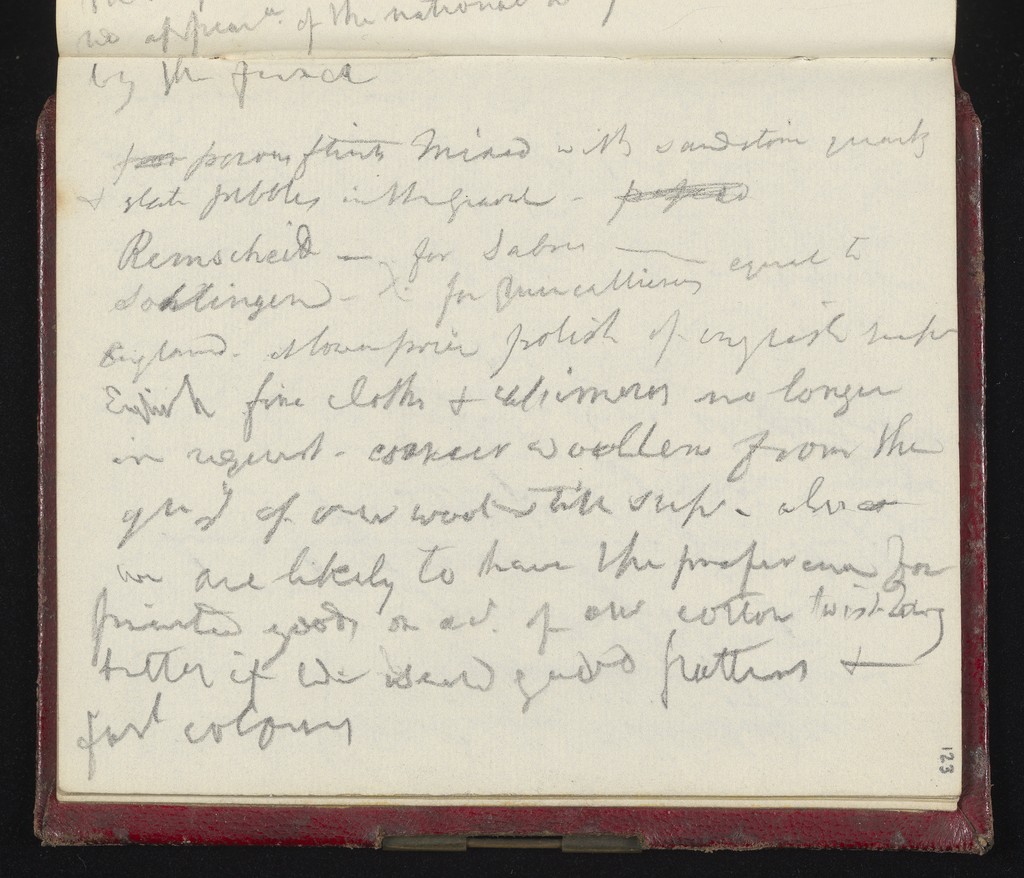 no appear.ce of the national
by the french
por porous flints mixed with sandstone quartz
& slate pebbles in the gravel -
Remscheid — for Sabres —
Sohlingen - for equal to
England. polish of english
English fine cloths & no longer
in request - coarser woollens from the
of our wool still sup. - also
we are likely to have the preference for
printed goods on ac. of our cotton twist being
better if we used good patterns &
fast colours
123